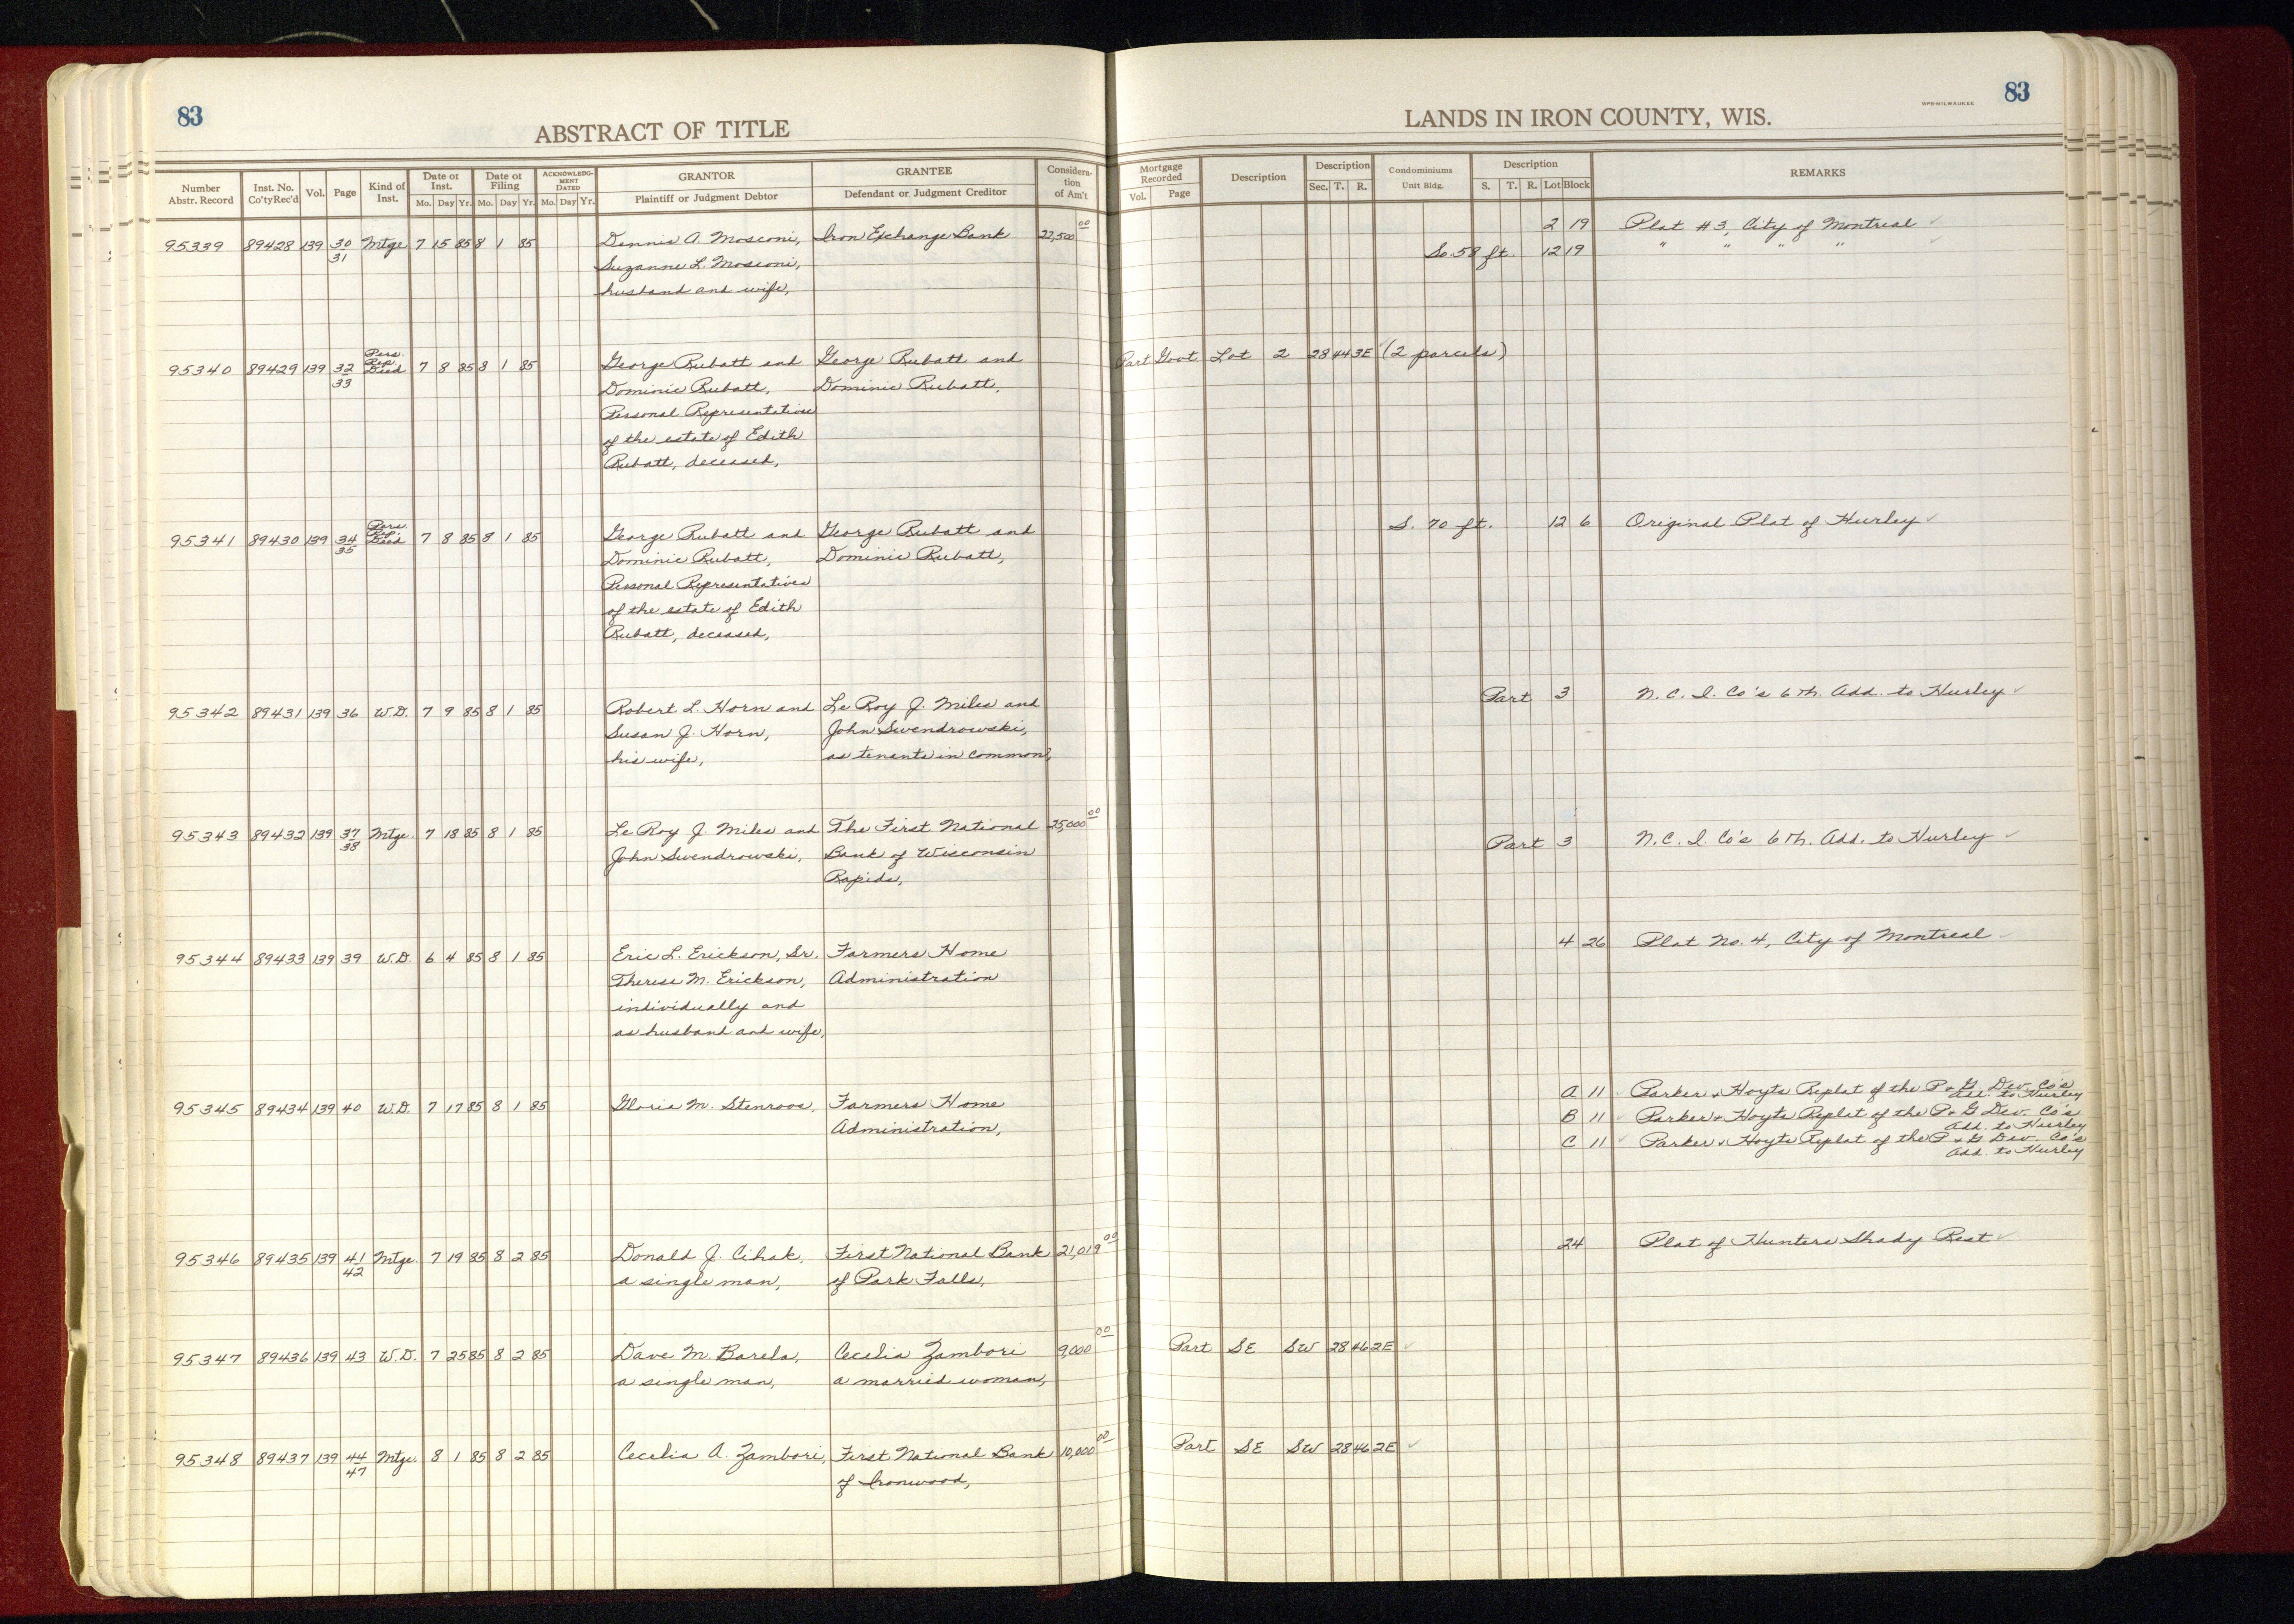 83
ABSTRACT OF TITLE
LANDS IN IRON COUNTY, WIS.
WPB-MILWAUKEE
83
Number Abstr. Record | Inst. No. Co'ty Rec'd | Vol. | Page | Kind of Inst. | Date of Inst. Mo. Day Yr. | Date of Filing Mo. Day Yr. | ACKNOWLEDGMENT DATED Mo. Day Yr. | GRANTOR Plaintiff or Judgment Debtor | GRANTEE Defendant or Judgment Creditor | Consideration of Am't | Mortgage Recorded Vol. Page | Description | Description Sec. T. R. | Condominiums Unit Bldg. | Description S. T. R. Lot Block | REMARKS
95339 89428 139 30 Mtge 7 15 85 8 1 85 Dennis A. Mosconi, Iron Exchange Bank 22,500 00 2 19 Plat #3, City of Montreal ✓
31 Suzanne L. Mosconi, So. 58 ft. 12 19 " " " " ✓
husband and wife,
Pers.
Rep.
95340 89429 139 32 Deed 7 8 85 8 1 85 George Rubatt and George Rubatt and Part Govt Lot 2 28 44 3E (2 parcels)
33 Dominic Rubatt, Dominic Rubatt,
Personal Representative
of the estate of Edith
Rubatt, deceased,
Pers.
Rep.
95341 89430 139 34 Deed 7 8 85 8 1 85 George Rubatt and George Rubatt and S. 70 ft. 12 6 Original Plat of Hurley ✓
35 Dominic Rubatt, Dominic Rubatt,
Personal Representatives
of the estate of Edith
Rubatt, deceased,
95342 89431 139 36 W.D. 7 9 85 8 1 85 Robert L. Horn and Le Roy J. Miles and Part 3 N.C.I. Co's 6th. Add. to Hurley ✓
Susan J. Horn, John Swendrowski,
his wife, as tenants in common,
95343 89432 139 37 Mtge. 7 18 85 8 1 85 Le Roy J. Miles and The First National 25,000 00 Part 3 N.C.I. Co's 6th. Add. to Hurley ✓
38 John Swendrowski, Bank of Wisconsin
Rapids,
95344 89433 139 39 W.D. 6 4 85 8 1 85 Eric L. Erickson, Sr. Farmers Home 4 26 Plat No. 4, City of Montreal
Therese M. Erickson, Administration
individually and
as husband and wife,
95345 89434 139 40 W.D. 7 17 85 8 1 85 Gloria M. Stenroos, Farmers Home A 11 Parker & Hoyts Replat of the P & G Dev. Co's
Add. to Hurley
Administration, B 11 Parker & Hoyts Replat of the P & G Dev. Co's
Add. to Hurley
C 11 Parker & Hoyts Replat of the P & G Dev. Co's
Add. to Hurley
95346 89435 139 41 Mtge. 7 19 85 8 2 85 Donald J. Cihak, First National Bank 21,019 00 24 Plat of Hunters Shady Rest ✓
42 a single man, of Park Falls,
95347 89436 139 43 W.D. 7 25 85 8 2 85 Dave M. Barela, Cecelia Zambori 9,000 00 Part SE SW 28 46 2E ✓
a single man, a married woman,
95348 89437 139 44 Mtge. 8 1 85 8 2 85 Cecelia A. Zambori, First National Bank 10,000 00 Part SE SW 28 46 2E ✓
47 of Ironwood,